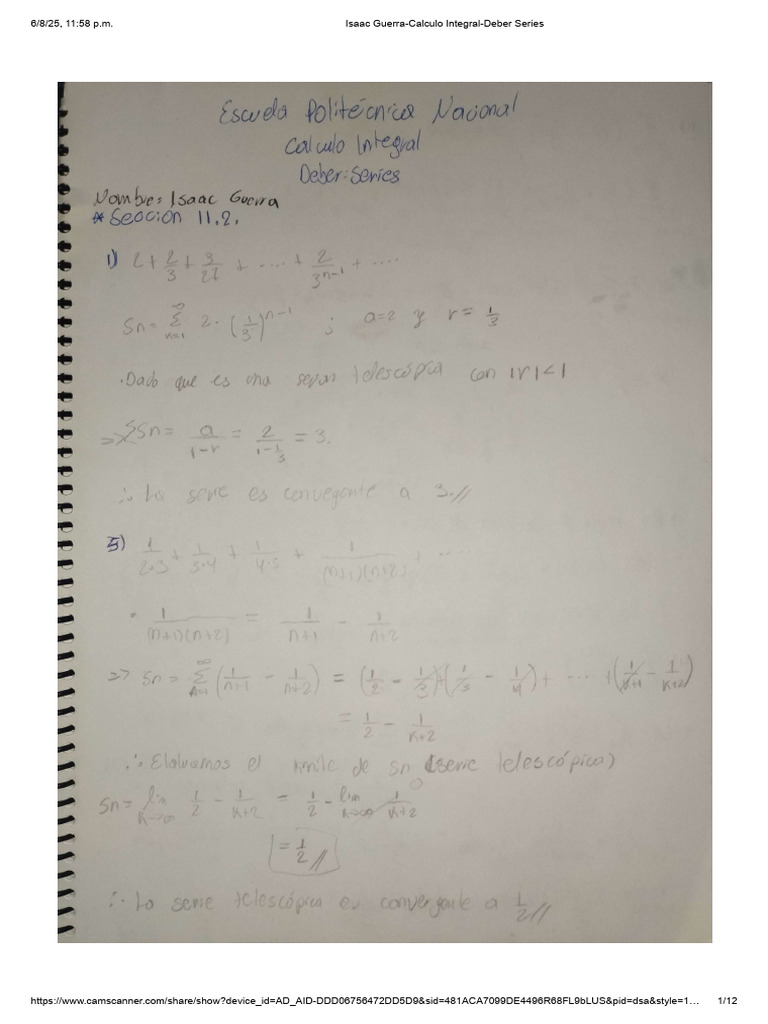 6/8/25, 11:58 p.m. Isaac Guerra-Calculo Integral-Deber Series
Escuela Politécnica Nacional
Calculo Integral
Deber: Series
Nombre: Isaac Guerra
* Sección 11.2.
1) 2 + 2/3 + 3/27 + .... + 2/3^(n-1) + ....
Sn = ∑_(n=1)^∞ 2 · (1/3)^(n-1) ; a=2 y r = 1/3
· Dado que es una telescópica con |r| < 1
=> Sn = a/(1-r) = 2/(1-1/3) = 3.
∴ La serie es convegente a 3.//
5) 1/(2·3) + 1/(3·4) + 1/(4·5) + 1/((n+1)(n+2)) + ....
· 1/((n+1)(n+2)) = 1/(n+1) - 1/(n+2)
=> Sn = ∑^∞ (1/(n+1) - 1/(n+2)) = (1/2 - 1/3) + (1/3 - 1/4) + .... + (1/(k+1) - 1/(k+2))
= 1/2 - 1/(k+2)
∴ el de Sn (serie telescópica)
Sn = lim_(k→∞) 1/2 - 1/(k+2) = 1/2 - lim_(k→∞) 1/(k+2) 0
= 1/2 //
∴ La serie telescópica es convergente a 1/2 //
https://www.camscanner.com/share/show?device_id=AD_AID-DDD06756472DD5D9&sid=481ACA7099DE4496R68FL9bLUS&pid=dsa&style=1… 1/12